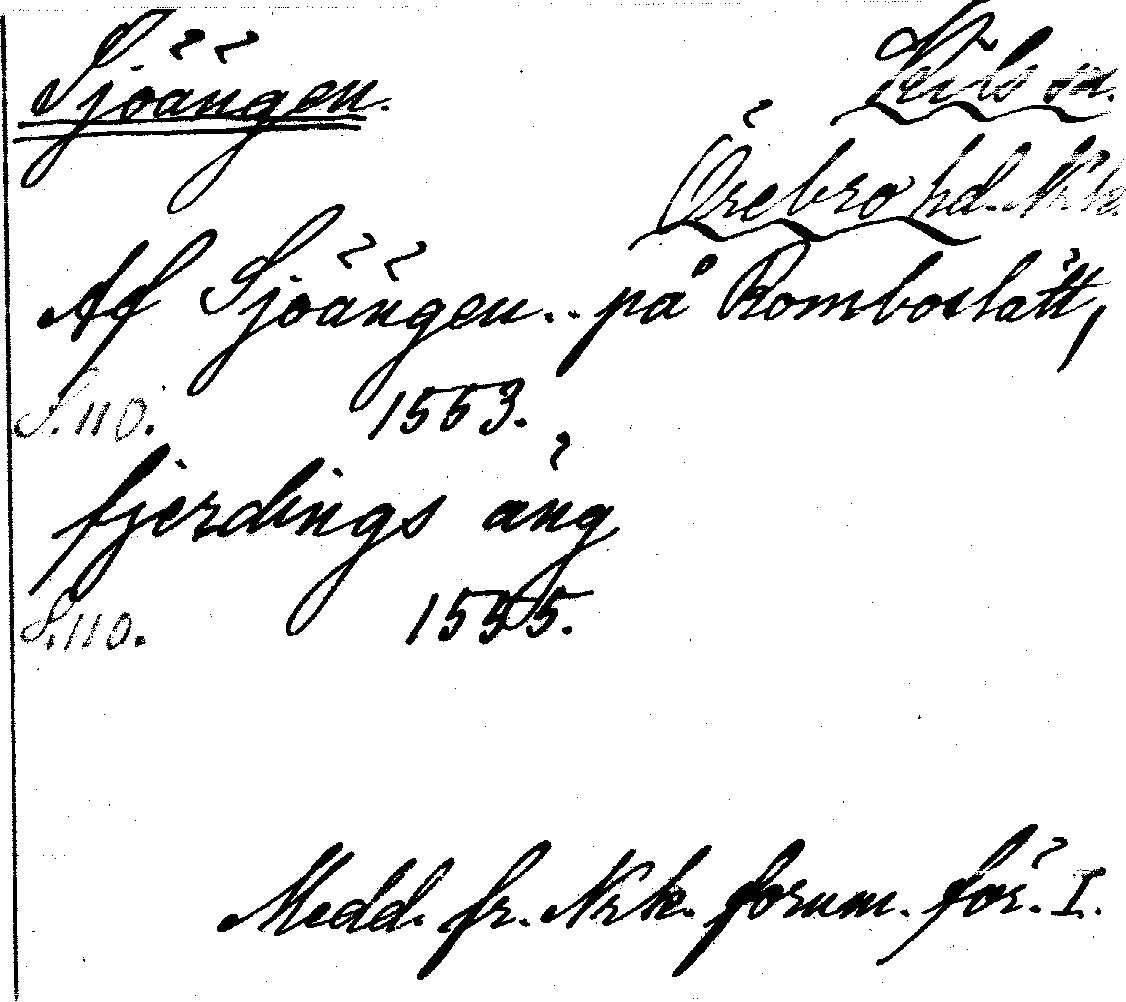 Sjöängen.
Örebro hd. Nrk.
Af Sjöängen.. på Romboslätt,
S. 110. 1553.
fjerdings äng
S. 110. 1555.
Medd. fr. Nrk. fornm. för. I.